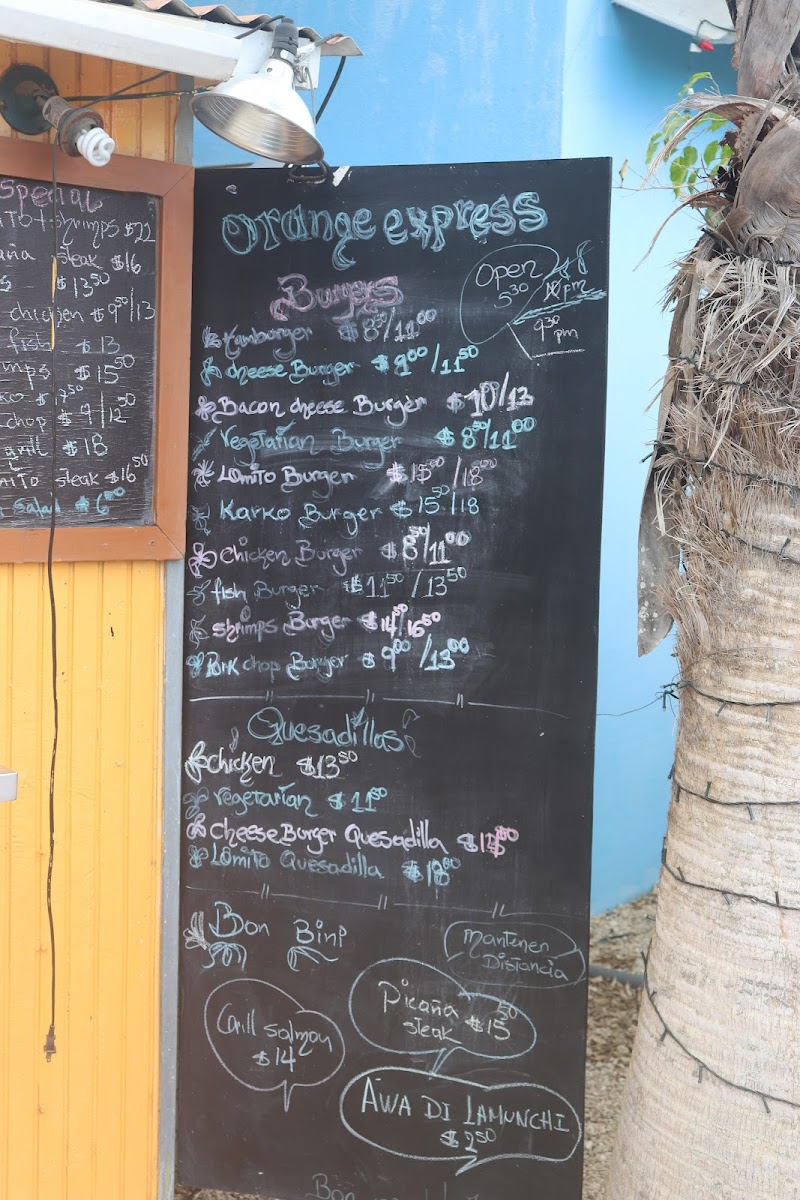 Special
+ shrimps $21
steak $16
$13 50
chicken $9 50/13
fish $13
$15 50
chop $9/12 50
grill $18
steak $16 50
Salad $6 00
Orange express
Open
5 30
pm
9 30
pm
Burgers
Hamburger $8 50/11 00
cheese Burger $9 00/11 50
Bacon cheese Burger $10 /13
Vegetarian Burger $8 50/11 00
Lomito Burger $15 50/18 00
Karko Burger $15 50/18
chicken Burger $8 50/11 00
fish Burger $11 50/13 50
shrimps Burger $14 50/16 50
Pork chop Burger $9 00/13 00
Quesadillas
chicken $13 50
Vegetarian $11 50
Cheese Burger Quesadilla
Lomito Quesadilla $18 50
Bon Bini
Mantenen
Distancia
Grill Salmon
$14
Picaña
steak $15 50
AWA DI LAMUNCHI
$2 50
Bon